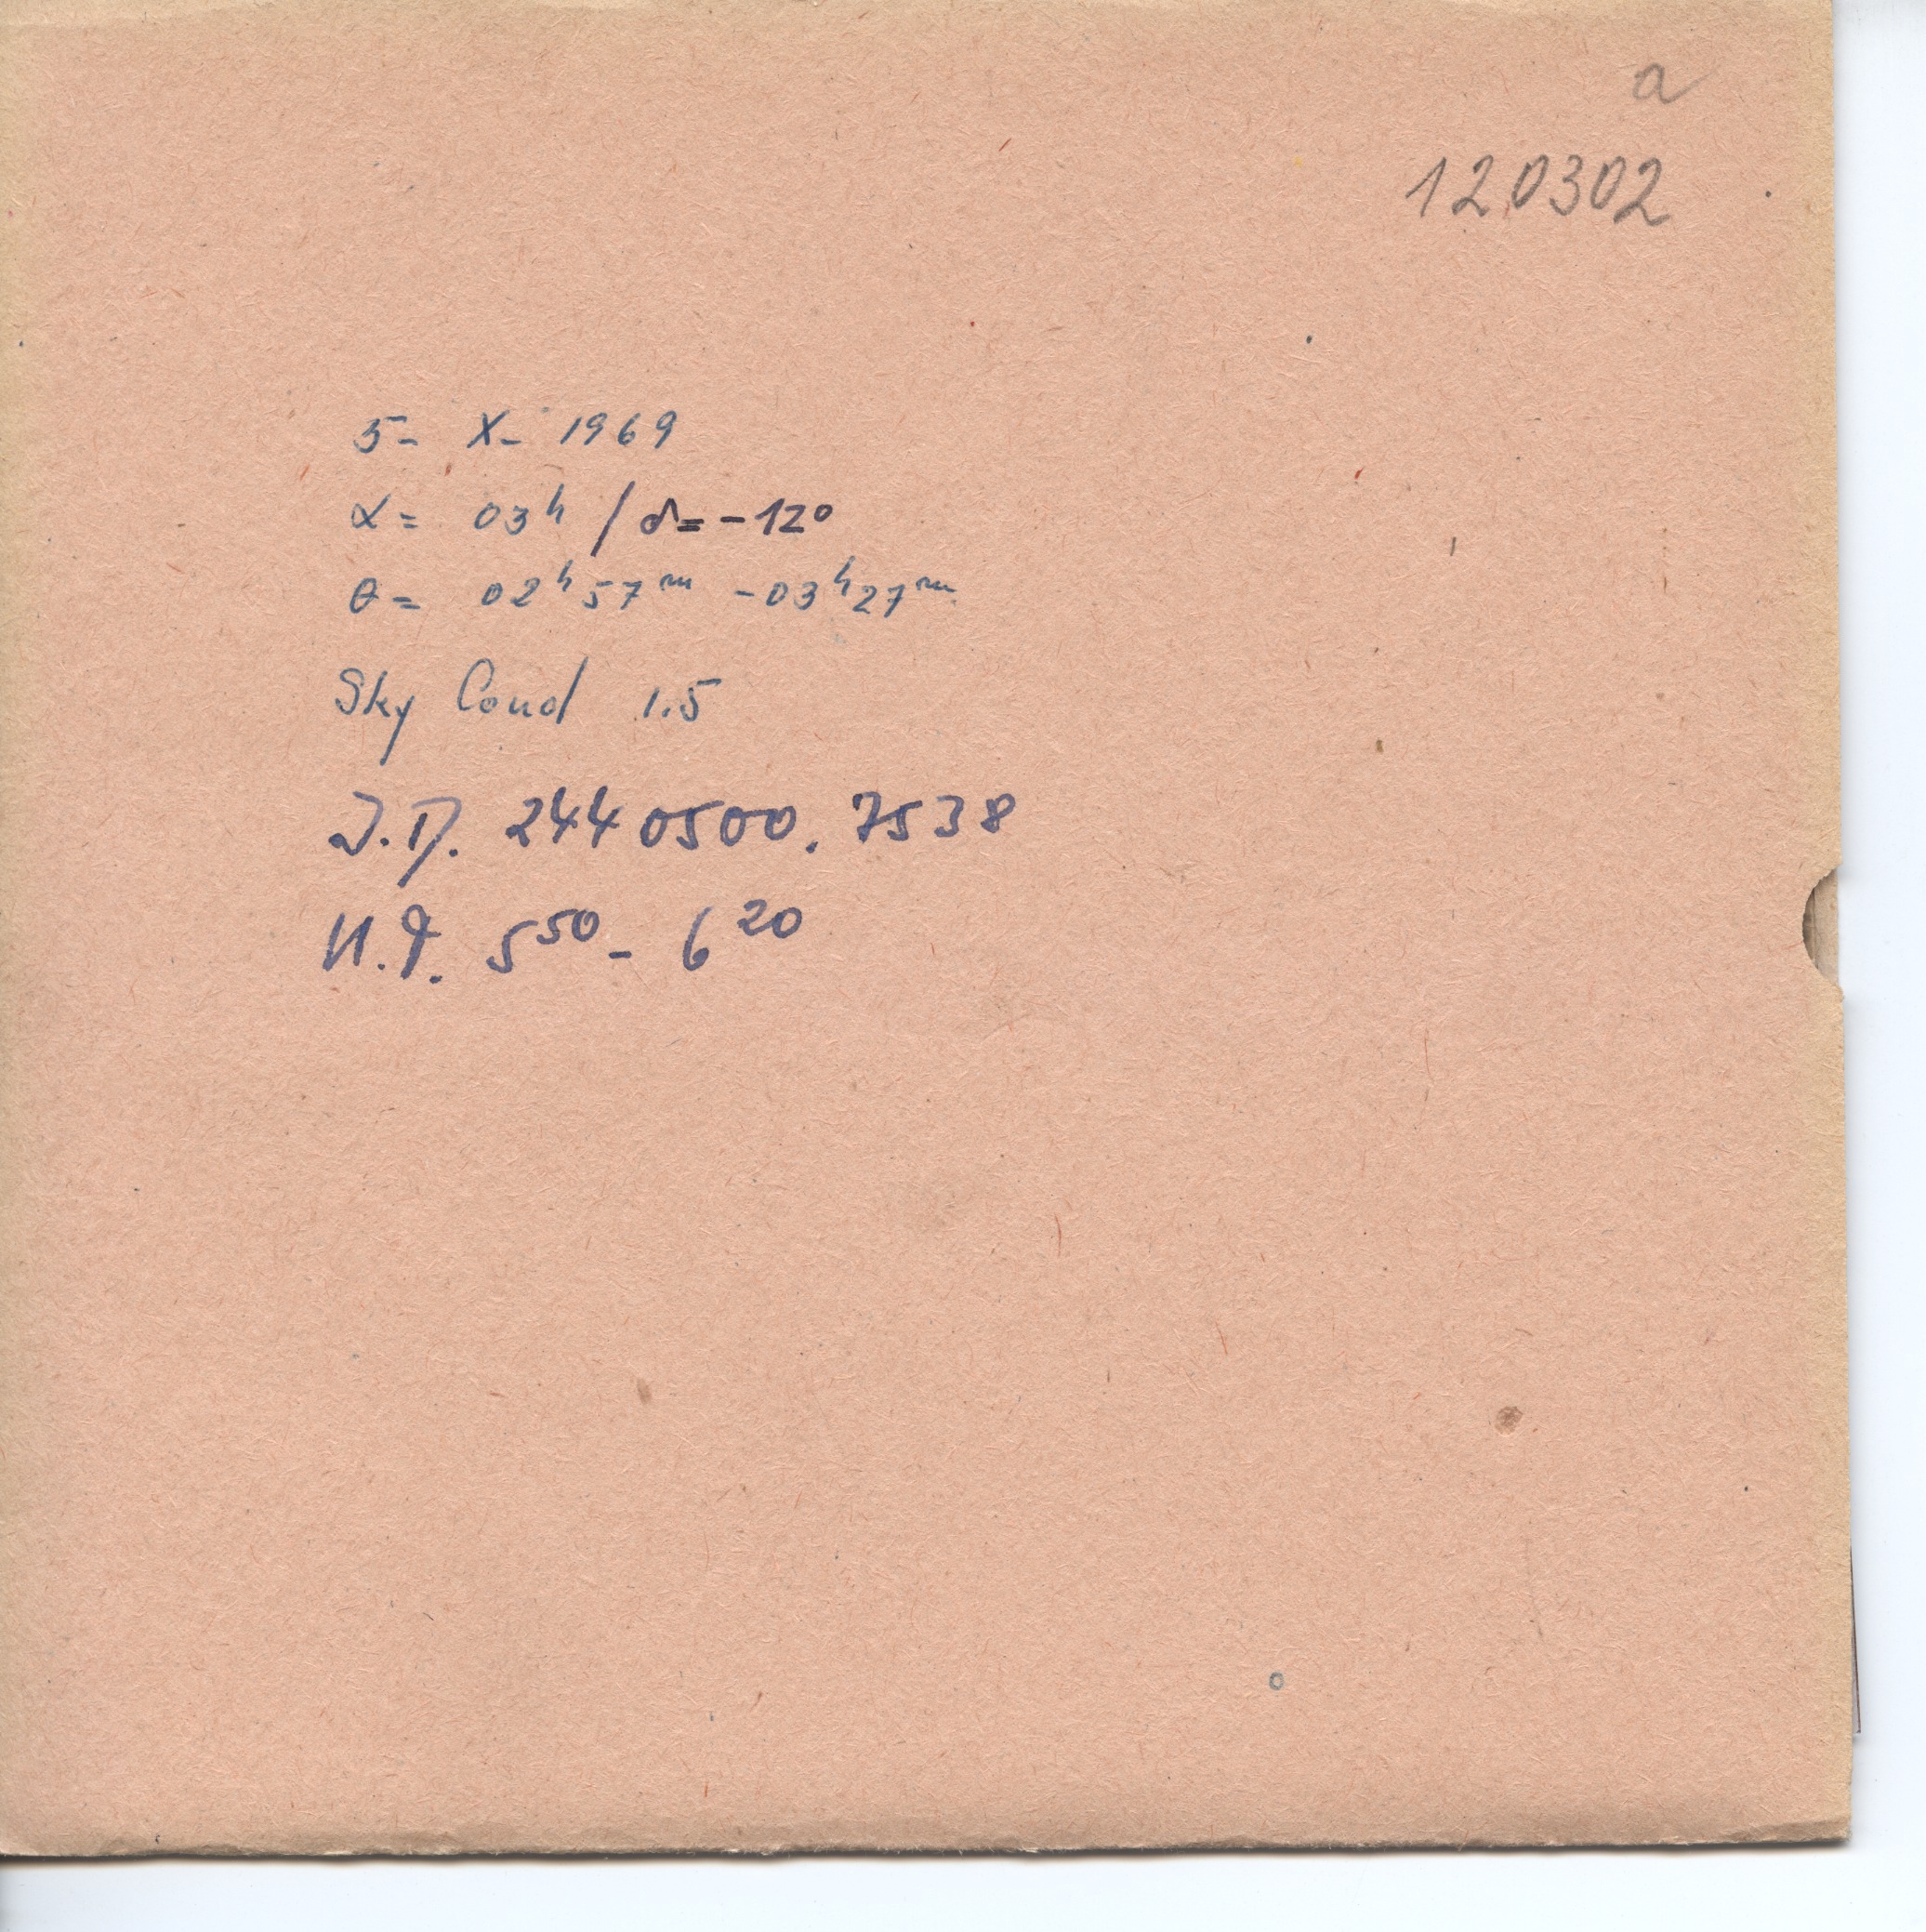 a
120302
5- X- 1969
α= 03ʰ / δ= -12°
θ= 02ʰ57ᵐ -03ʰ27ᵐ
Sky Cond 1.5
J.D. 2440500.7538
U.T. 5⁵⁰- 6²⁰